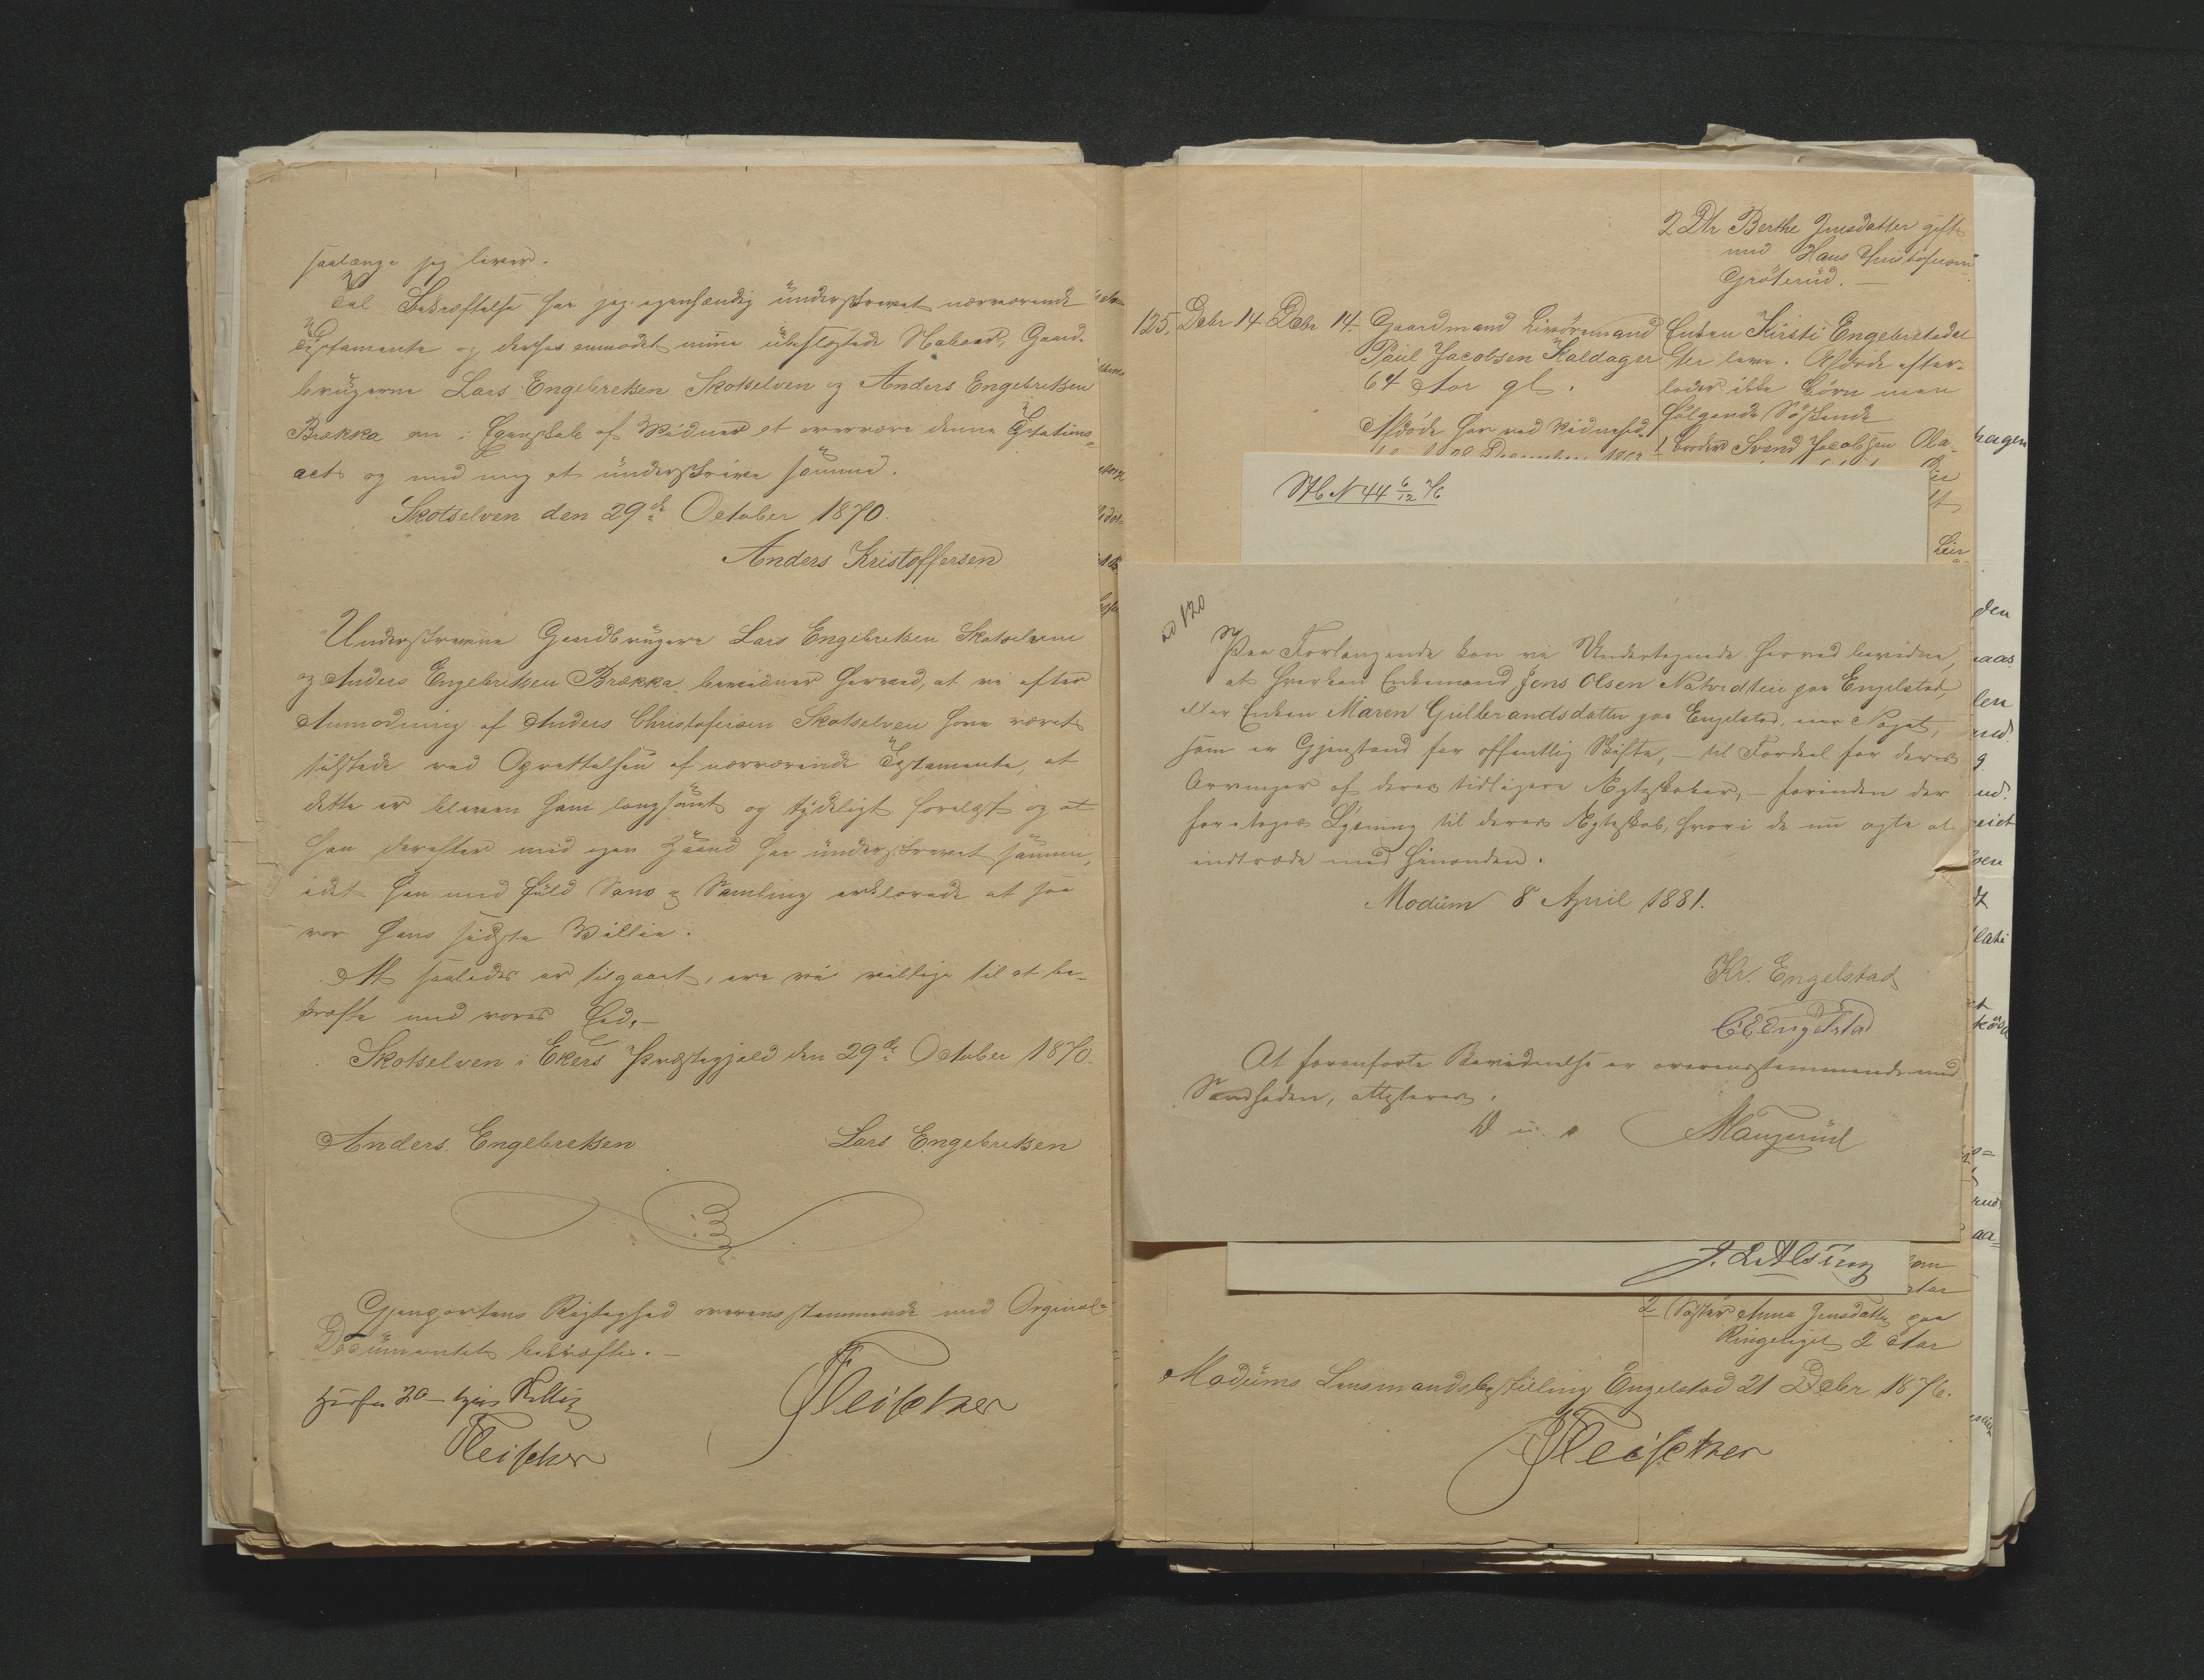 saalænge jeg lever.
Til Bekræftelse har jeg egenhændig underskrevet nærværende
Testamente og derhos anmodet mine ubeslægtede Naboer, Gaard-
brugerne Lars Engebretsen Skotselven og Anders Engebretsen
Brække om i Egenskab af Vidner at overvære denne Testations-
act og med mig at underskrive samme.
Skotselven den 29de October 1870.
Anders Kristoffersen
Underskrevne Gaardbrugere Lars Engebretsen Skotselven
og Anders Engebretsen Brække bevidner herved, at vi efter
Anmodning af Anders Christofersen Skotselven have været
tilstede ved Oprettelsen af nærværende Testamente, at
dette er bleven ham langsomt og tydeligt forelæst og at
han derefter med egen Haand har underskrevet samme,
idet han med fuld Sans og Samling erklærede at saa
var hans sidste Villie.
At saaledes er tilgaaet, ere vi villige til at be-
kræfte med vores Eed.-
Skotselven i Ekers Præstegjeld den 29de October 1870.
Anders Engebretsen Lars Engebretsen
Gjenpartens Rigtighed overensstemmende med Orginal-
Documentet bekræftes.-
Fleischer
Fleischer
2 Dtr Berthe Jensdatter gift
med Hans Christofersen
Grøterud.-
125. Debr 14 Debr 14. Gaardmand Livøremand Enken Kirsti Engebretsdat
Paul Jacobsen Kaldager ter lever. Afdøde efter-
64 Aar gl. lader ikke Børn men
Afdøde har ved følgende Søskende
1 Broder Svend Jacobsen Ola-
N 44 6/12 76
ad 120
Paa Forlangende kan vi Undertegnede herved bevidne,
at hverken Enkemand Jens Olsen Natvedtei paa Engelstad,
eller Enken Maren Gulbrandsdatter paa Engelstad, eier Noget,
som er Gjenstand for offentlig Skifte, - til Fordeel for deres
Arvinger af deres tidligere Ægteskaber, - forinden der
foretages Lysning til deres Ægteskab, hvori de nu agte at
indtræde med hinanden.
Modum 8 April 1881.
Kr. Engelstad
C E Engelstad
At foranførte Bevidnelse er overensstemmende med
Sandheden, attesteres.
D u s Maugerud
2 Søster Anna Jensdatter paa
Ringeriget 2 Aar
Modums Lensmandsbestilling Engelstad 21 Debr 1876.
Fleischer